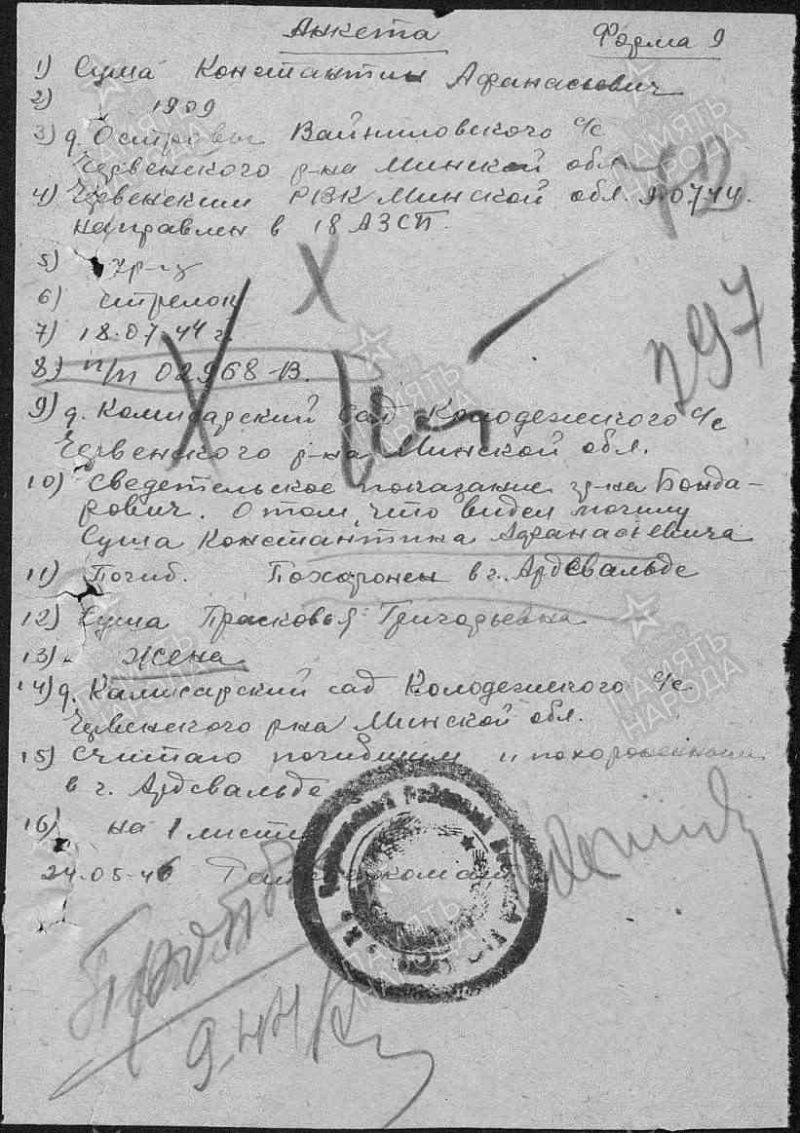 Анкета Форма 9
1) Суша Константин Афанасьевич
2) 1909
3) д. Островы Вайниловского с/с
Червенского р-на Минской обл.
4) Червенским РВК Минской обл. 9.07.44.
направлен в 18 АЗСП.
5) кр-ц
6) стрелок
7) 18.07.44 г.
8) п/п 02968-В.
297
9) д. Комисарский Сад Колодежского с/с
Червенского р-на Минской обл.
10) Сведетельское показание гр-на Бонда-
рович. О том, что видел могилу
Суша Константина Афанасьевича
11) Погиб. Похоронен в г. Ардсвальде
12) Суша Прасковья Григорьевна
13) Жена
14) д. Камисарский сад Колодежского с/с
Червенского р-на Минской обл.
15) Считаю погибшим и похороненным
в г. Ардсвальде
16) на 1 листе
24.05.46
9.44
ПАМЯТЬ НАРОДА